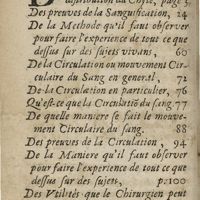 distribution du Chyle, page 5
Des preuves de la Sanguification, 24
De la Methode qu'il faut observer
pour faire l'experience de tout ce que
dessus sur des sujets vivans, 60
De la Circulation ou mouvement Cir-
culaire du Sang en general, 72
De la Circulation en particulier, 76
Qu'est-ce que la Circulatiō du sang 77
De quelle maniere se fait le mouve-
ment Circulaire du sang. 88
Des preuves de la Circulation, 94
De la Maniere qu'il faut observer
pour faire l'experience de tout ce que
dessus sur des sujets, p:100
Des Vtilités que le Chirurgien peut